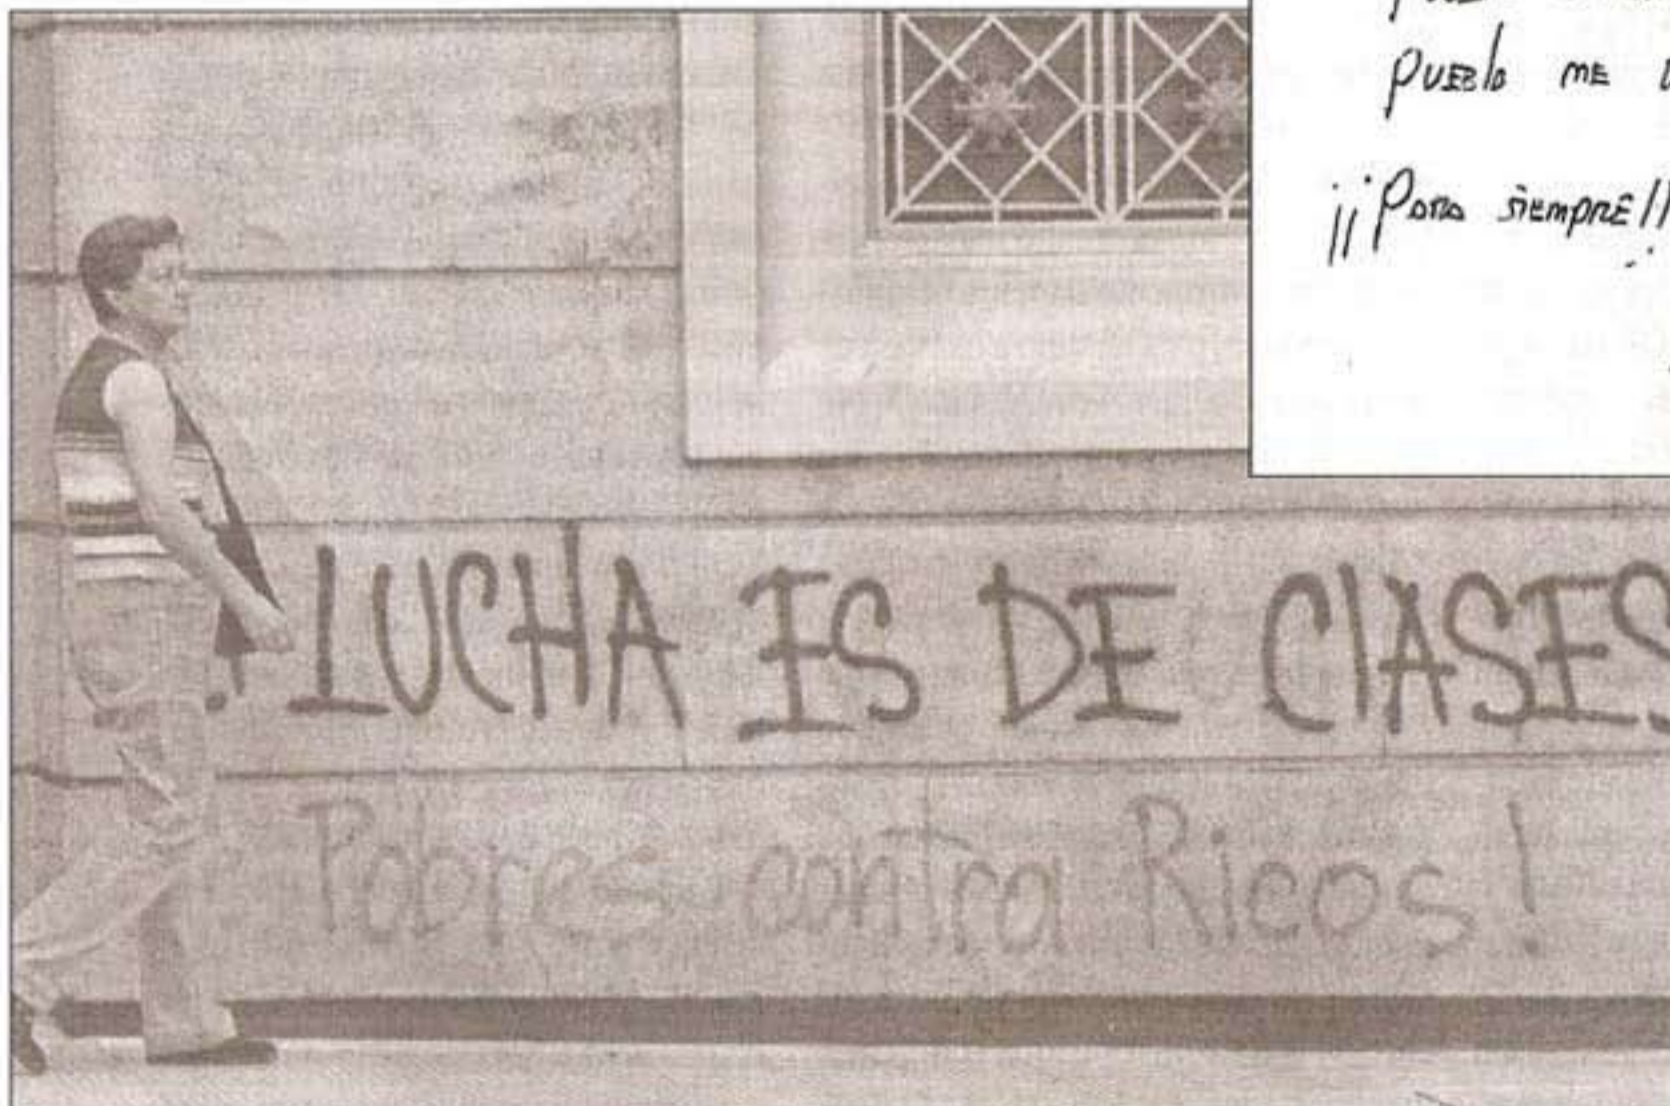 PUEBlo ME
¡¡Para siempre!!
LUCHA ES DE ClASES
Pobres contra Ricos!